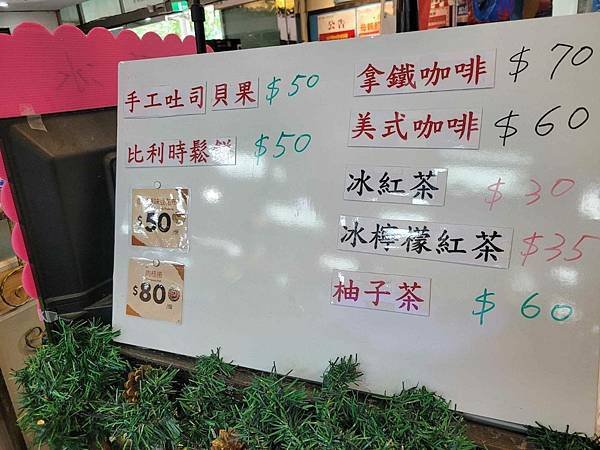 公告
手工吐司 貝果 $50
比利時鬆餅 $50
$50
肉桂捲
$80
拿鐵咖啡 $70
美式咖啡 $60
冰紅茶 $30
冰檸檬紅茶 $35
柚子茶 $60